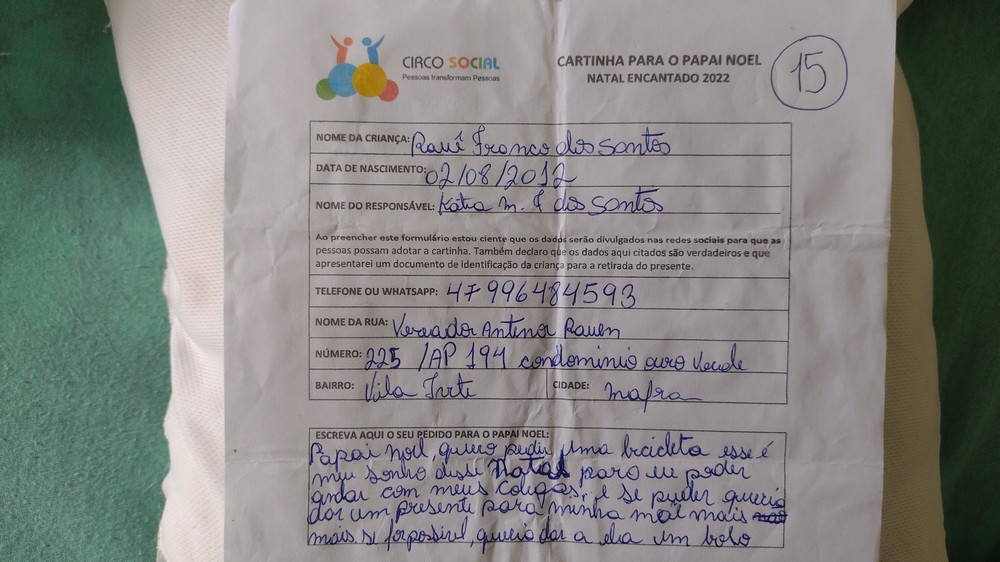 CIRCO SOCIAL
Pessoas transformam Pessoas
CARTINHA PARA O PAPAI NOEL
NATAL ENCANTADO 2022
15
NOME DA CRIANÇA: Rauê Franco dos Santos
DATA DE NASCIMENTO: 02/08/2012
NOME DO RESPONSÁVEL: Kátia M. F dos Santos
Ao preencher este formulário estou ciente que os dados serão divulgados nas redes sociais para que as
pessoas possam adotar a cartinha. Também declaro que os dados aqui citados são verdadeiros e que
apresentarei um documento de identificação da criança para a retirada do presente.
TELEFONE OU WHATSAPP: 47996484593
NOME DA RUA: Vereador Antenor Rauen
NÚMERO: 225 /AP 194 condominio ouro Verde
BAIRRO: Vila Ivete CIDADE: Mafra
ESCREVA AQUI O SEU PEDIDO PARA O PAPAI NOEL:
Papai Noel, quero pedir uma bicicleta esse é
meu sonho deste Natal para eu poder
andar com meus colegas, e se puder queria
dar um presente para minha mãe mais
mais se for possivel, queria dar a ela um bolo